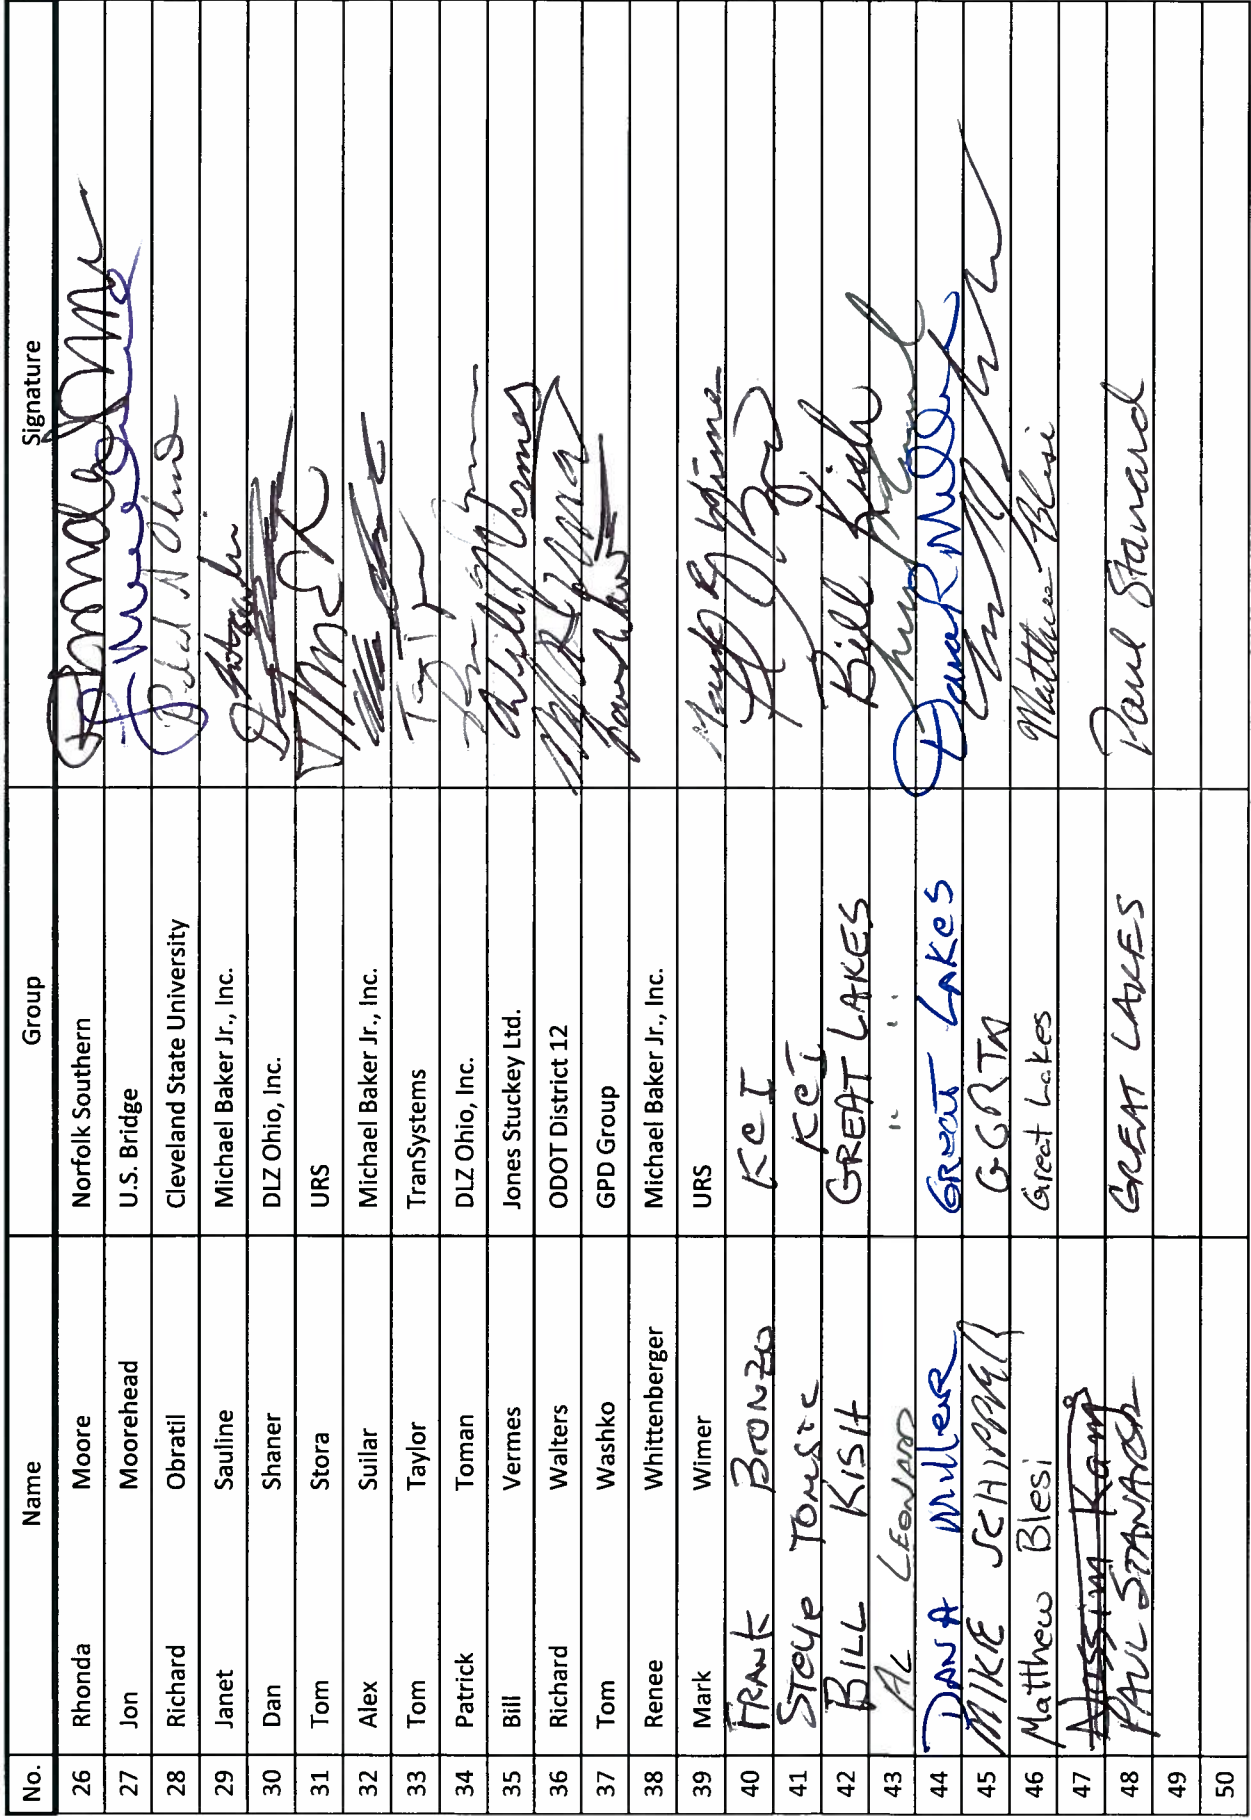 No. Name Group Signature
26 Rhonda Moore Norfolk Southern
27 Jon Moorehead U.S. Bridge
28 Richard Obratil Cleveland State University
29 Janet Sauline Michael Baker Jr., Inc.
30 Dan Shaner DLZ Ohio, Inc.
31 Tom Stora URS
32 Alex Suilar Michael Baker Jr., Inc.
33 Tom Taylor TranSystems
34 Patrick Toman DLZ Ohio, Inc.
35 Bill Vermes Jones Stuckey Ltd.
36 Richard Walters ODOT District 12
37 Tom Washko GPD Group
38 Renee Whittenberger Michael Baker Jr., Inc.
39 Mark Wimer URS
40 FRANK BRONZO KCI
41 Steve Tomsic KCI
42 BILL KISH GREAT LAKES Bill Kish
43 AL LEONARD " "
44 DANA MILLER GREAT LAKES
45 MIKE SCHIPPER GCRTA
46 Matthew Blesi Great Lakes Matthew Blesi
47
48 PAUL STANARD GREAT LAKES Paul Stanard
49
50